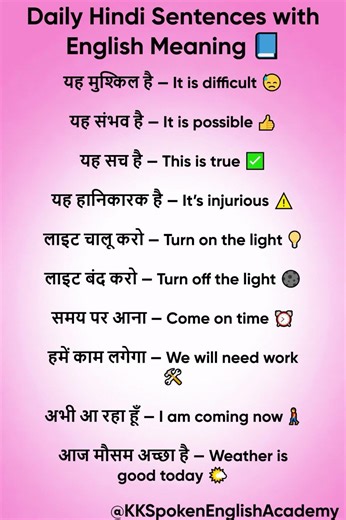 Daily Hindi Sentences with
English Meaning 📘
यह मुश्किल है – It is difficult 😓
यह संभव है – It is possible 👍
यह सच है – This is true ✅
यह हानिकारक है – It's injurious ⚠️
लाइट चालू करो – Turn on the light 💡
लाइट बंद करो – Turn off the light 🌑
समय पर आना – Come on time ⏰
हमें काम लगेगा – We will need work
🛠️
अभी आ रहा हूँ – I am coming now 🚶
आज मौसम अच्छा है – Weather is
good today 🌤️
@KKSpokenEnglishAcademy